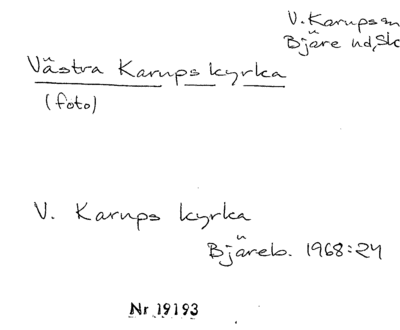 V. Karups sn
Bjäre hd, Sk
Västra Karups kyrka
(foto)
V. Karups kyrka
Bjäreb. 1968:24
Nr 19193